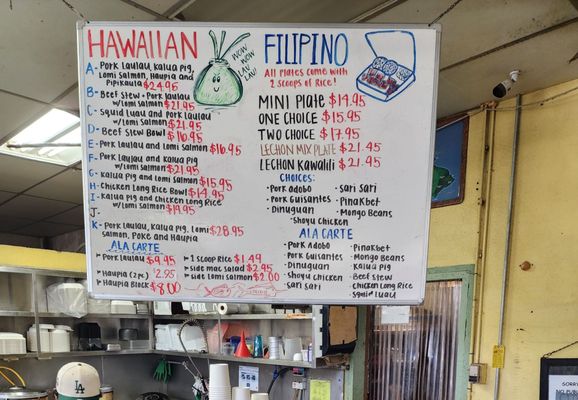 HAWAIIAN
A- Pork Laulau, Kalua Pig,
Lomi Salmon, Haupia and
Pipikaula $24.95
B- Beef Stew - Pork Laulau
w/Lomi Salmon $21.95
C- Squid Luau and Pork Laulau
w/Lomi Salmon $21.95
D- Beef Stew Bowl $16.95
E- Pork Laulau and Lomi Salmon $16.95
F- Pork Laulau and Kalua Pig
w/Lomi Salmon $21.95
G- Kalua Pig and Lomi Salmon $15.95
H- Chicken Long Rice Bowl $14.95
I- Kalua Pig and Chicken Long Rice
w/Lomi Salmon $19.95
J-
K- Pork Laulau, Kalua Pig, Lomi $28.95
Salmon, Poke and Haupia
ALA CARTE
Pork Laulau $9.95
Haupia (2pc) $2.95
Haupia Block $8.00
1 Scoop Rice $1.49
side Mac Salad $2.95
side Lomi Salmon $2.00
WOW
WOW
LAU
LAU
FILIPINO
All Plates come with
2 Scoops of Rice!
MINI Plate $14.95
ONE CHOICE $15.95
TWO CHOICE $17.95
LECHON MIX PLATE $21.45
LECHON KAWALILI $21.45
CHOICES:
Pork Adobo
Pork Guisantes
Dinuguan
Shoyu Chicken
Sari Sari
Pinakbet
Mongo Beans
ALA CARTE
Pork Adobo
Pork Guisantes
Dinuguan
Shoyu Chicken
Sari Sari
Pinakbet
Mongo Beans
Kalua Pig
Beef Stew
Chicken Long Rice
Squid Luau
LA
SORRY